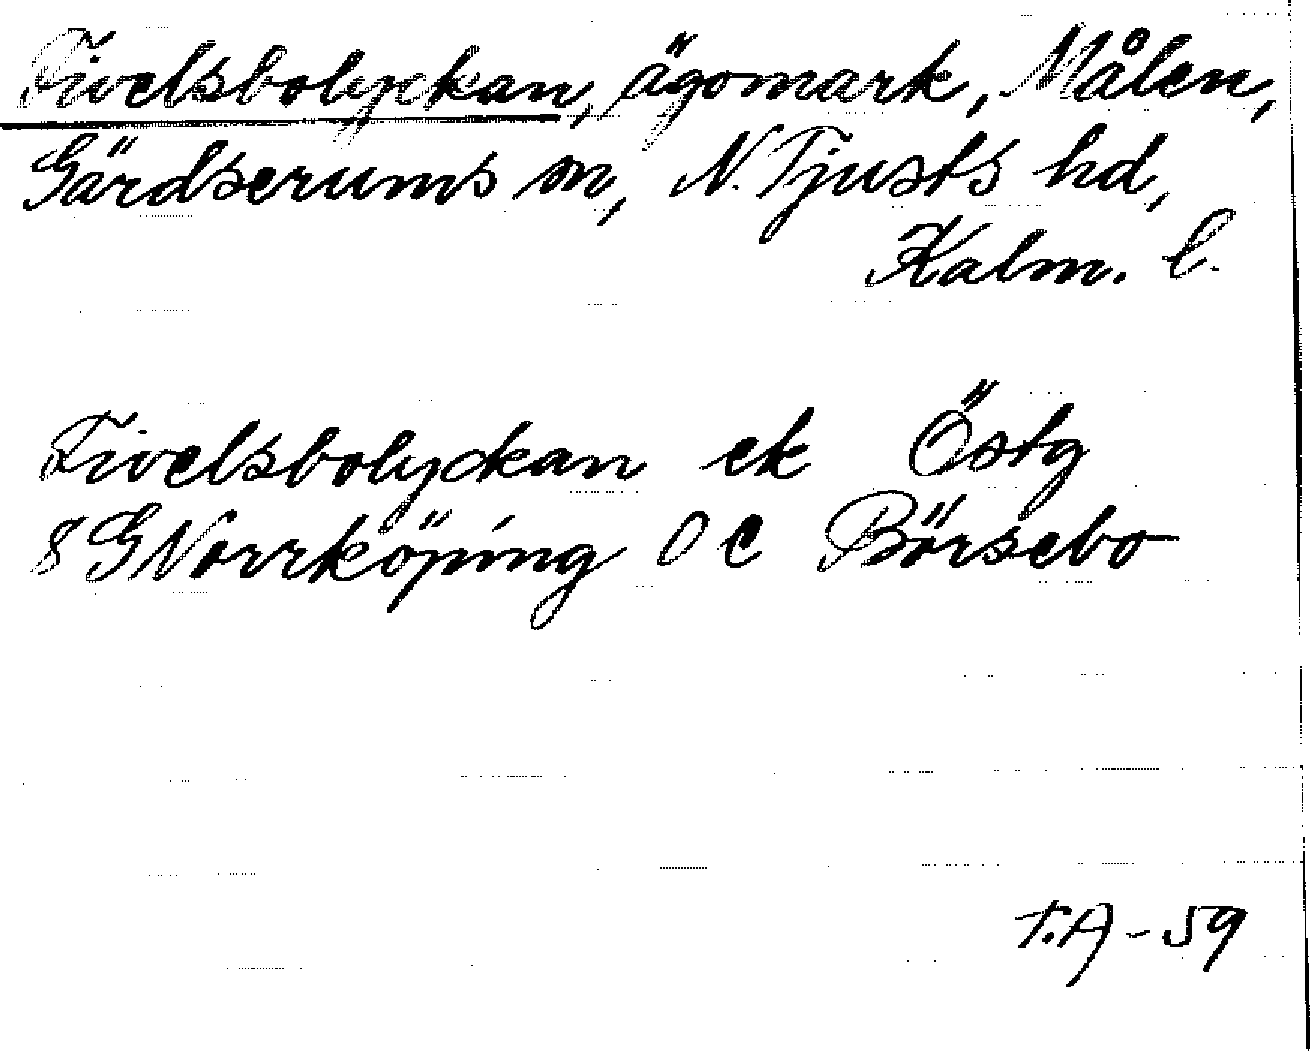 Fivelsbolyckan, ägomark, Målen,
Gärdserums sn, N. Tjusts hd,
Kalm. l.
Fivelsbolyckan ek Östg
8 G Norrköping 0 e Börsebo
T.A - 59